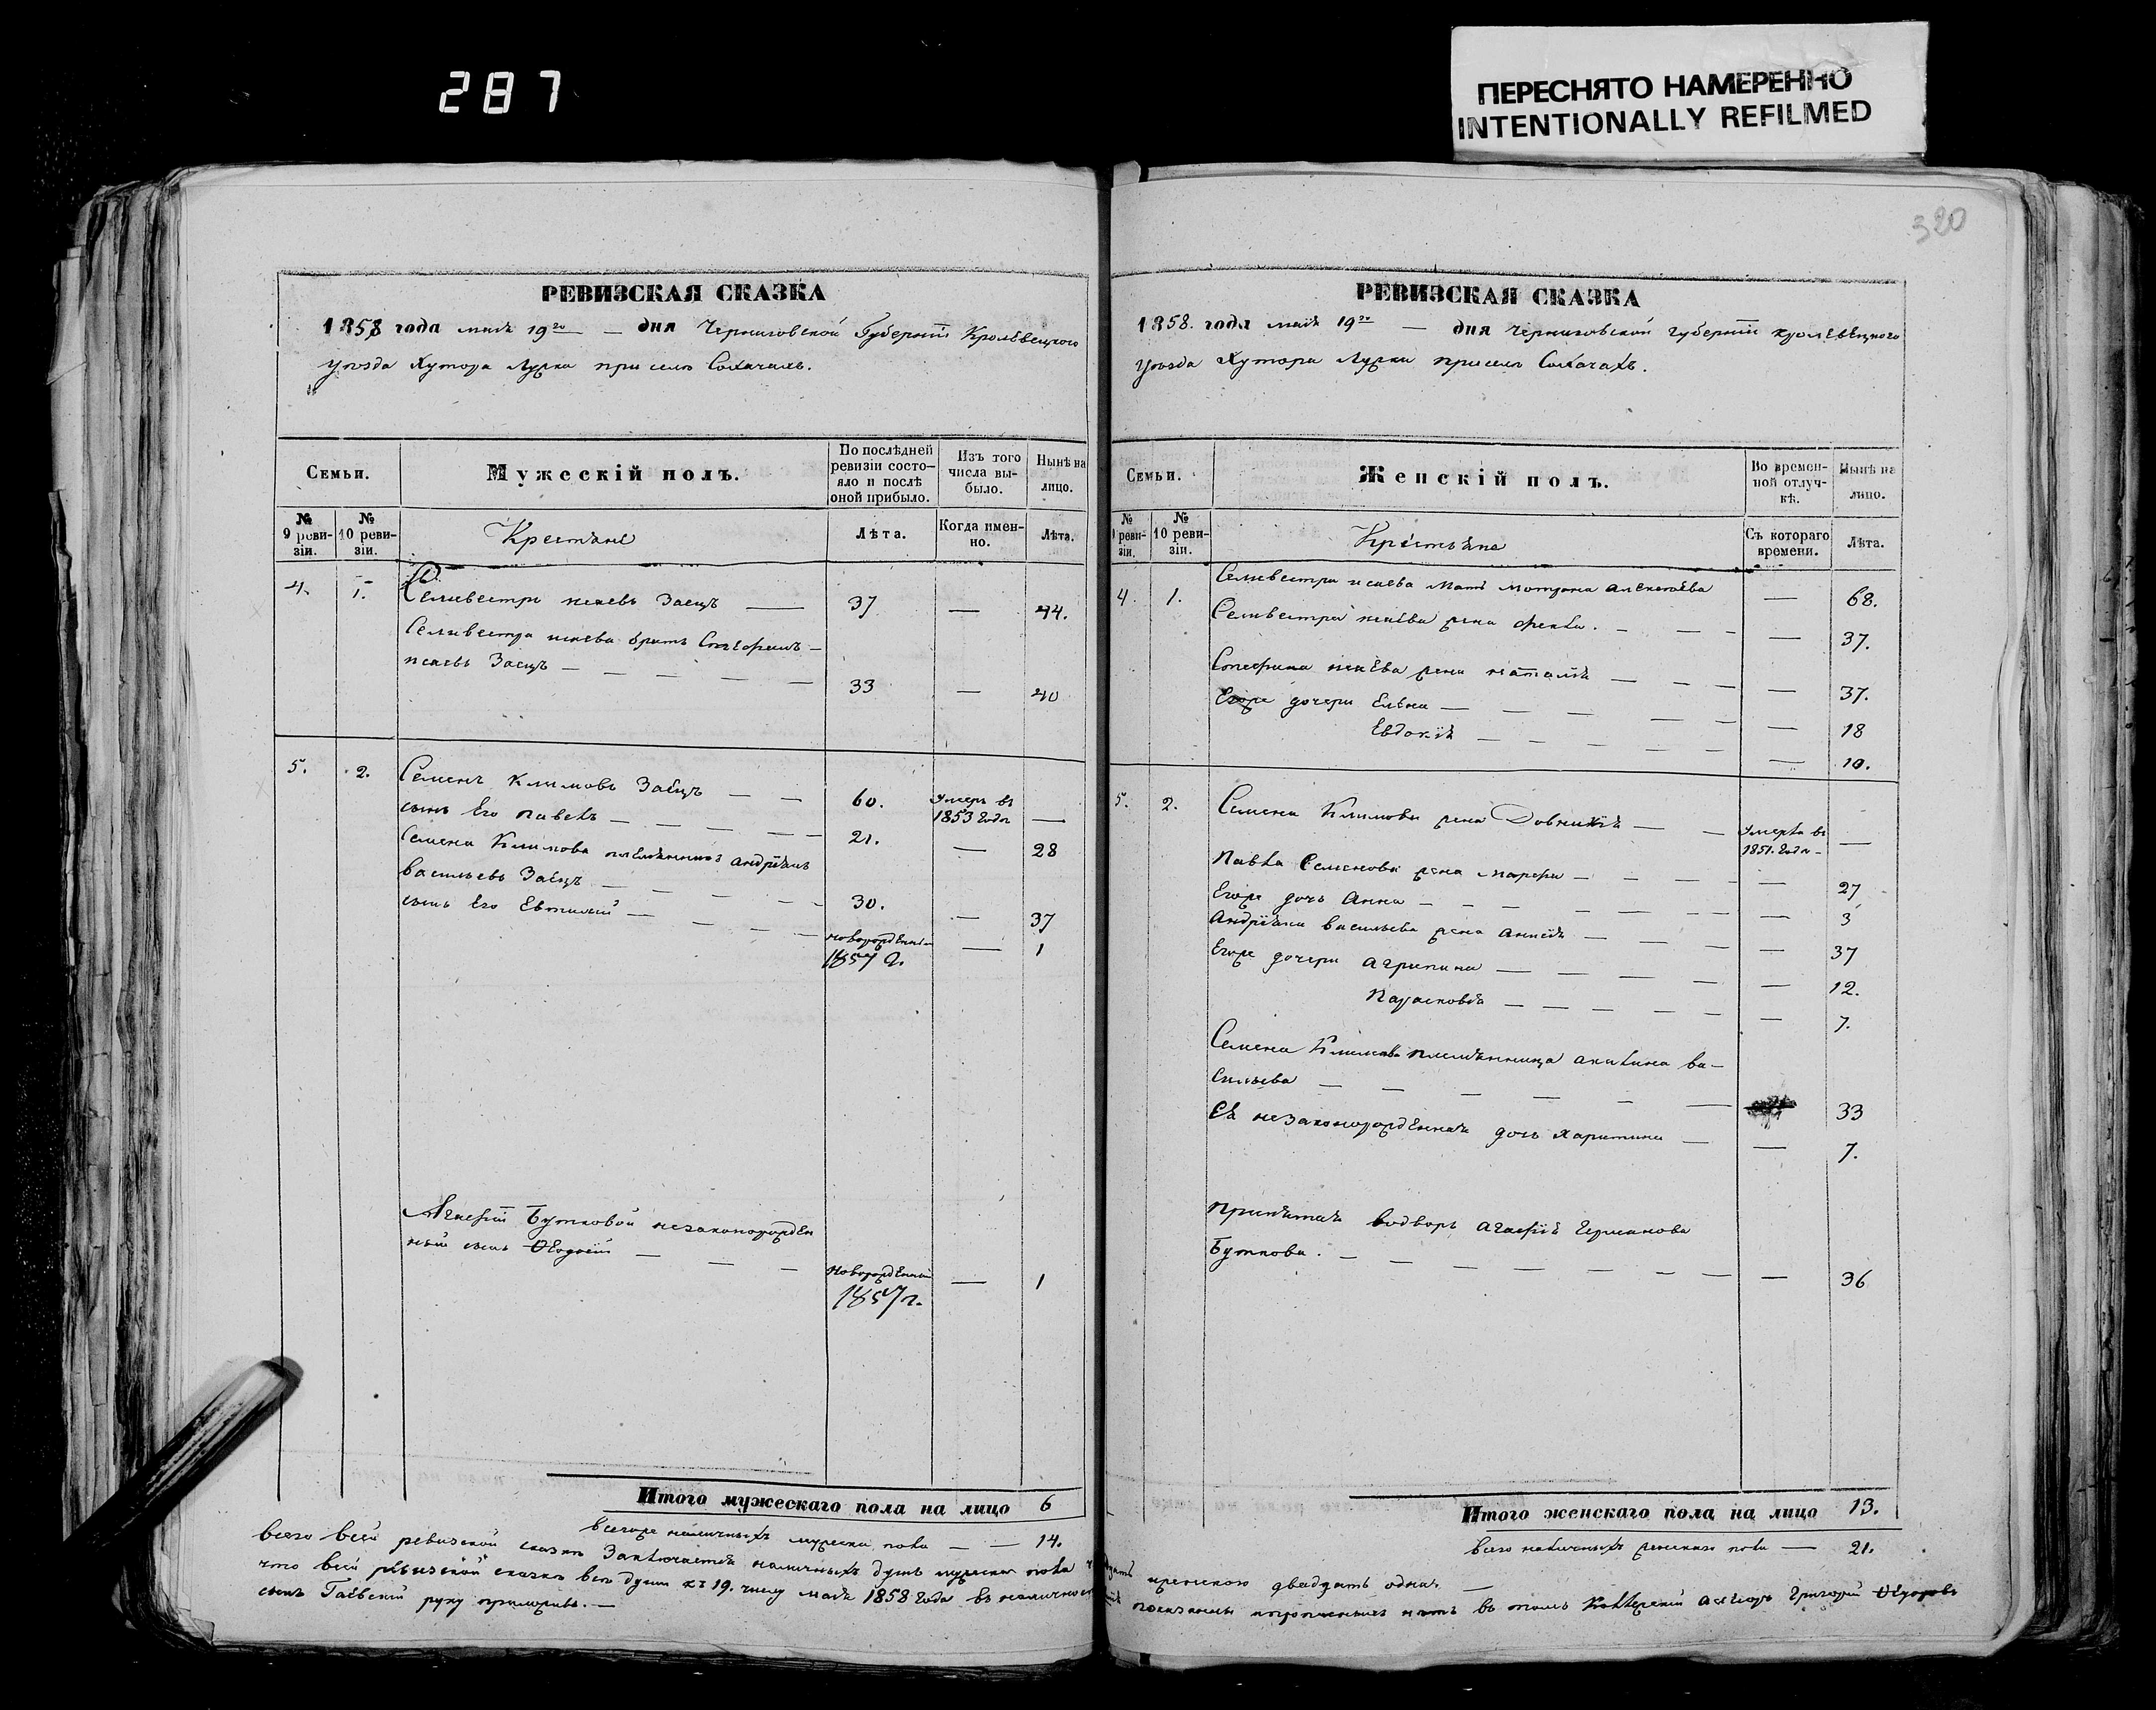 287
ПЕРЕСНЯТО НАМЕРЕННО
INTENTIONALLY REFILMED
320
РЕВИЗСКАЯ СКАЗКА
1858 года мая 19го — дня Черниговской Губерніи Кролевецкого
уезда Хутора Лужка при селе Сохачахъ.
Семьи.
Мужескій полъ.
По послѣдней ревизіи состояло и послѣ оной прибыло.
Изъ того числа выбыло.
Нынѣ на лицо.
№ 9 ревизіи.
№ 10 ревизіи.
Крестяне
Лѣта.
Когда именно.
Лѣта.
4. 1. Селивестръ исаевъ Заецъ — 37 — 44.
Селивестра исаева братъ Стефанъ —
исаевъ Заецъ — 33 — 40
5. 2. Семенъ Климовъ Заецъ — 60. Умеръ въ 1853 года —
сынъ Его павелъ — 21. — 28
Семена Климова племянникъ андріянъ
васильевъ Заецъ — 30. — 37
сынъ Его Евтихій — новорожденный 1857 г. — 1
Агафіи Бутковой незаконорожден
ный сынъ Ѳеодосій — новорожденный 1857 г. — 1
Итого мужескаго пола на лицо 6
всегоже наличныхъ мужска пола — 14.
РЕВИЗСКАЯ СКАЗКА
1858. года мая 19го — дня Черниговской губерніи кролевецкого
уезда Хутора Лужка при селе Сохачахъ.
Семьи.
Женскій полъ.
Во временной отлучкѣ.
Нынѣ на лицо.
№ 9 ревизіи.
№ 10 ревизіи.
Крестьяне
Съ котораго времени.
Лѣта.
4. 1. Селивестра исаева мать мотрона алексеева — 68.
Селивестра исаева жена фекла. — 37.
Стефана исаева жена наталія — 37.
Егоже дочери Елена — 18
Евдокія — 10.
5. 2. Семена Климова жена Домникія — умерла въ 1851. года —
Павла Семенова жена марфа — 27
Егоже дочь Анна — 3
Андріяна васильева жена — 37
Егоже дочери агрипина — 12.
Парасковія — 7.
Семена Климова племянница акилина ва-
сильева — 33
Ея незаконорожденная дочь харитина — 7.
Принятая водворъ агафія Германова
Буткова. — 36
Итого женскаго пола на лицо 13.
всего наличныхъ женска пола — 21.
всего всей ревизской сказке Заключается наличныхъ душъ мужска пола женского двадцать одна. —
что всей ревизской сказке все души къ 19. числу мая 1858 года въ наличности показаны прописныхъ нетъ въ томъ Григорій Ѳедоровъ
сынъ Гаевскій руку приложилъ. —